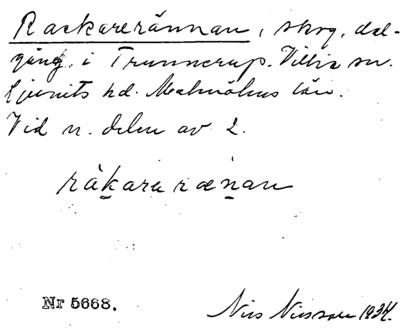 Rackarerännan, skog, dal-
gång, i Trunnerup. Villie sn.
Ljunits hd. Malmöhus län.
Vid n. delen av 2.
råkararænan
Nr 5668.
Nils Nilsson 1934.